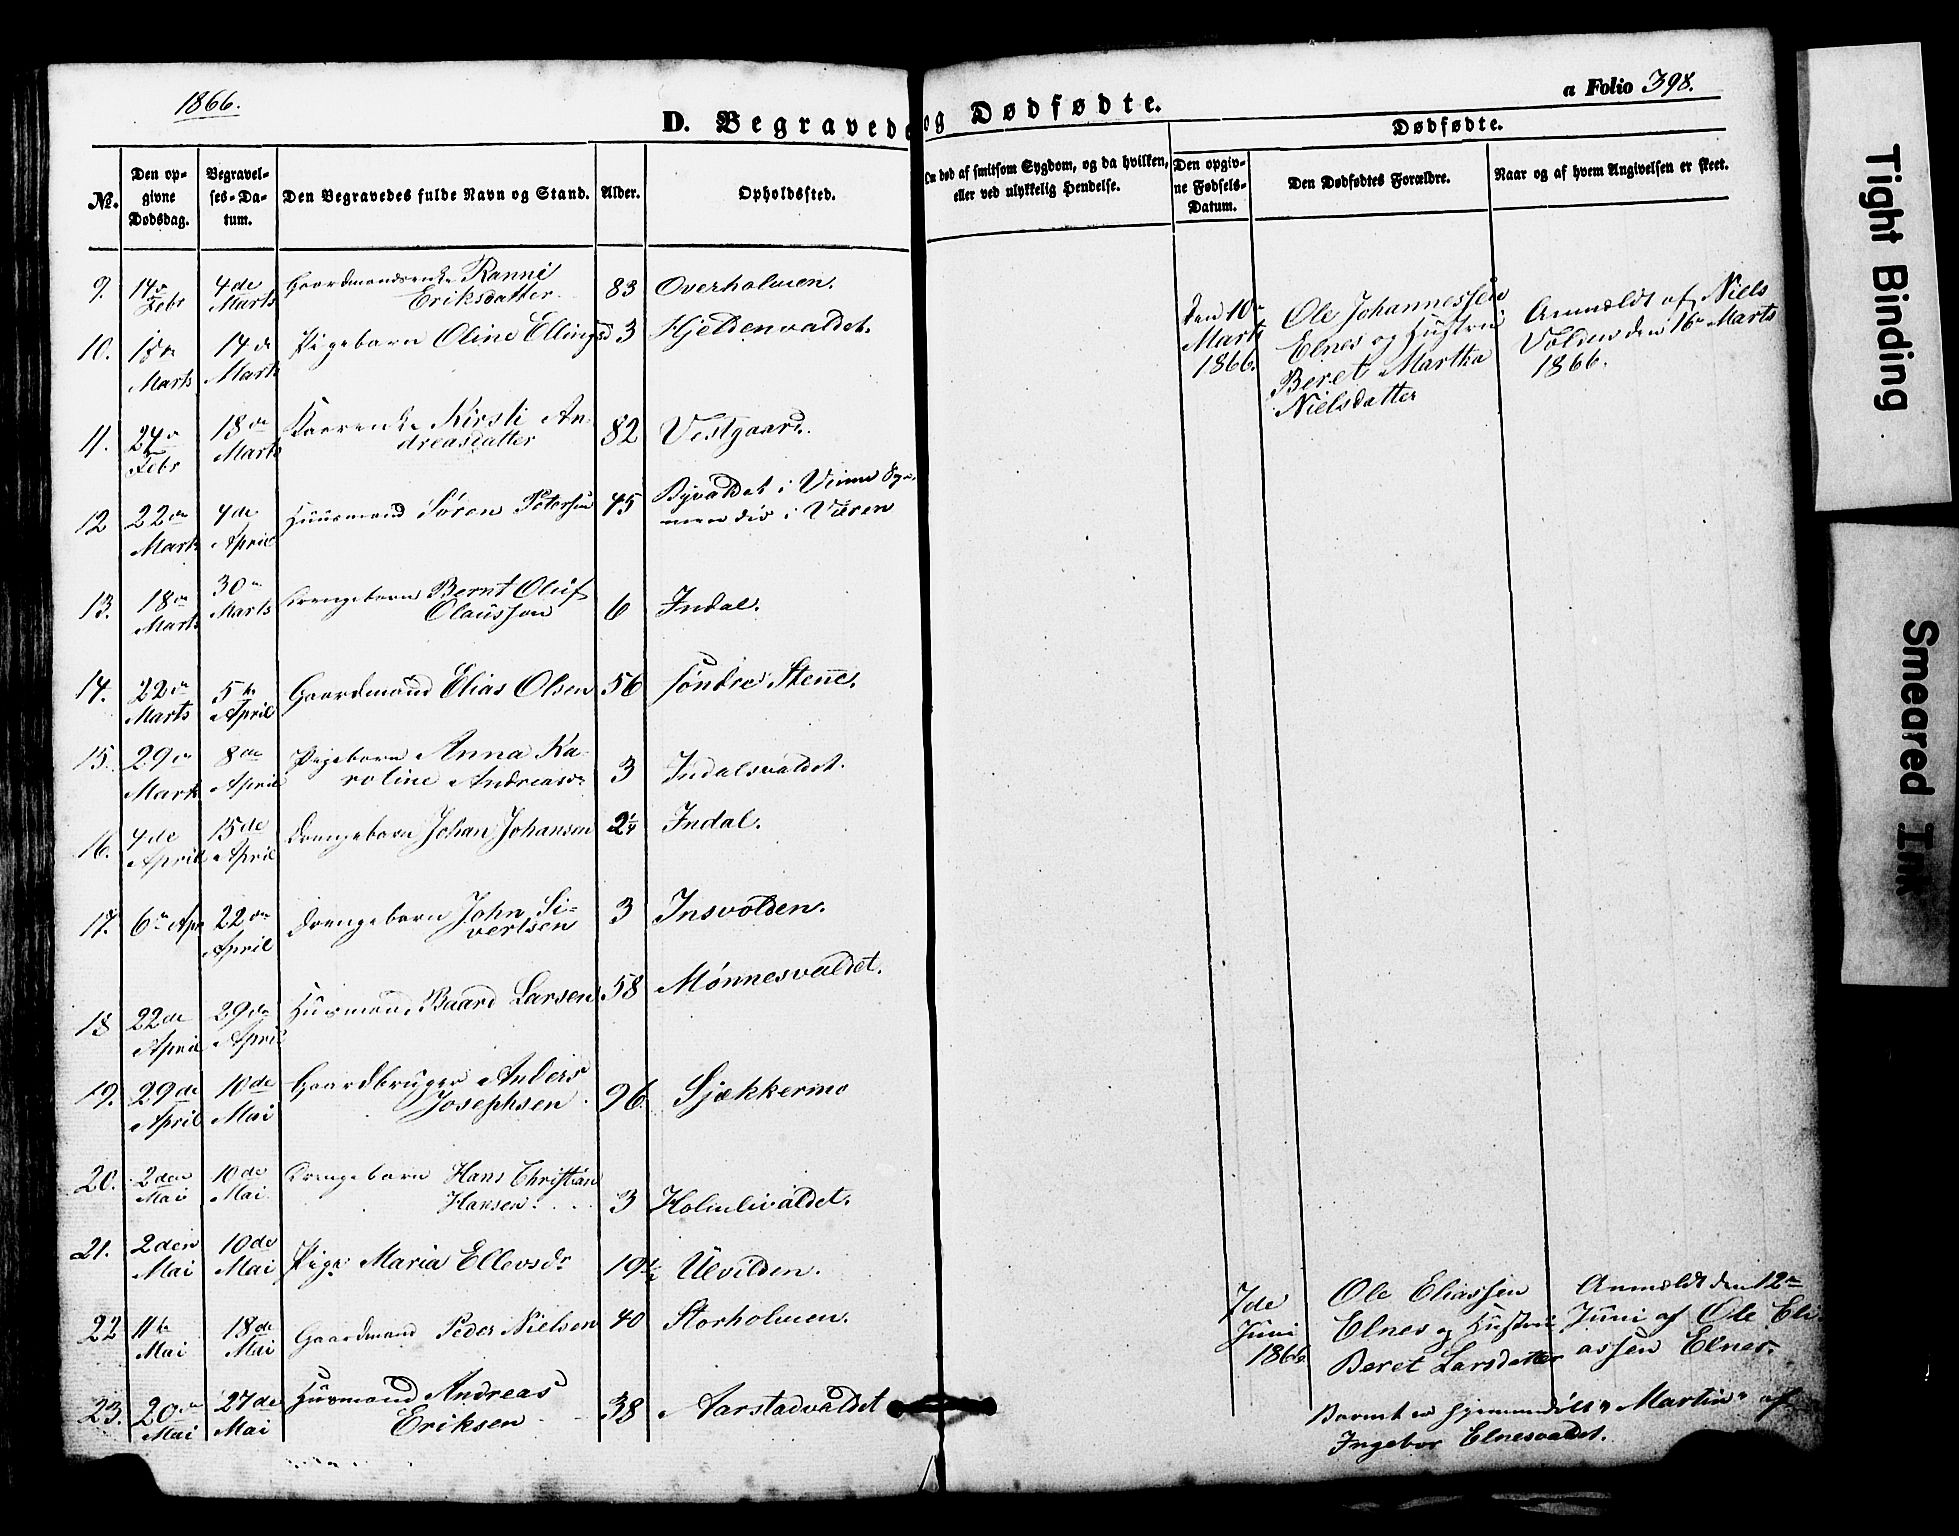 1866.
D. Begravede og Dødfødte.
a Folio 398.
Dødfødte.
No.
Den op-
givne
Dødsdag.
Begravel-
ses-Da-
tum.
Den Begravedes fulde Navn og Stand.
Alder.
Opholdssted.
Om død af smitsom Sygdom, og da hvilken,
eller ved ulykkelig Hendelse.
Den opgiv-
ne Fødsels-
Datum.
Den Dødfødtes Forældre.
Naar og af hvem Angivelsen er skeet.
9. 14de Febr 4de Marts Gaardmandsenke Ranni
Eriksdatter 83 Overholmen.
10. Marts 14de Marts Pigebarn Oline Ellingsd 3 Hjeldenvaldet.
11. 24de Febr 18de Marts Kirsti An-
dreasdatter 82 Vestgaard.
12 22de Marts 4de April Huusmand Sören Petersen 45 Byvaldet i Vinne
i Væren
13. 18de Marts 30te Marts Drengebarn Bernt Oluf
Olausson 6 Indal.
14. 22de Marts 5te April Gaardmand Elias Olsen 56 söndre Stene.
15. 29de Marts 8de April Pigebarn Anna Ka-
roline Andreasdr 3 Indalsvaldet.
16. 4de April 15de April Drengebarn Johan Johansen 2 1/4 Indal.
17. 6te Apr 22de April Drengebarn John Si-
vertsen 3 Insvolden.
18 22de April 29de April Husmand Baard Larsen 58 Mönnesvaldet.
19. 29de April 10de Mai Gaardbruger Anders
Josephsen 96. Sjækkermo
20. 2den Mai 10de Mai Drengebarn Hans Christian
Hansen. 3 Holmlivaldet.
21. 2den Mai 10de Mai Pige Maria Ellevsdr 19 1/2 Ulvilden.
22 11te Mai 18de Mai Gaardmand Peder Nielsen 40 Storholmen.
23. 20de Mai 27de Mai Husmand Andreas
Eriksen 38 Aarstadvaldet
den 10de
Marts
1866.
Ole Johannessen
Elnes og Hustru
Beret Martha
Nielsdatter
Anmeldt af Niels
Volden den 16de Marts
1866.
7de
Juni
1866
Ole Eliassen
Elnes og Hustru
Beret Larsdatter
Anmeldt den 12te
Juni af Ole Eli-
assen Elnes.
Barnet er hjemmedöbt af
Ingebor Elnesvaldet.
Tight Binding
Smeared Ink